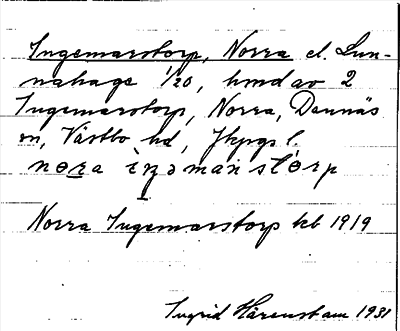 Ingemarstorp, Norra el. Lun-
nahage 1/20, hmd av 2
Ingemarstorp, Norra, Dannäs
sn, Västbo hd, Jkpgs l.
nora iŋəmaṅstorp
Norra Ingemarstorp kb 1919
Ingrid Härenstam 1931